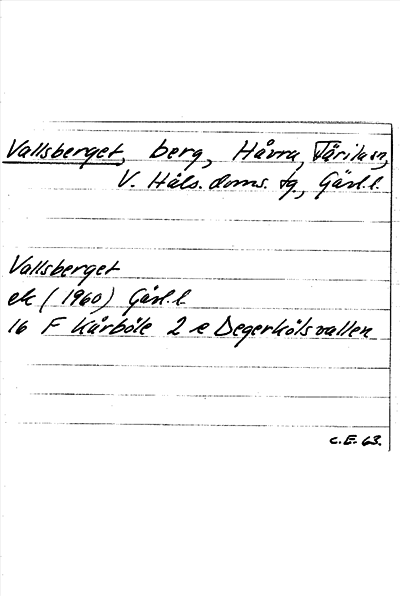 Vallsberget, berg, Håvra, Färila sn,
V. Häls. doms. tg., Gävl. l.
Vallsberget
ek (1960) Gävl. l
16 F Kårböle 2 e Degerkölsvallen
C.E. 63.